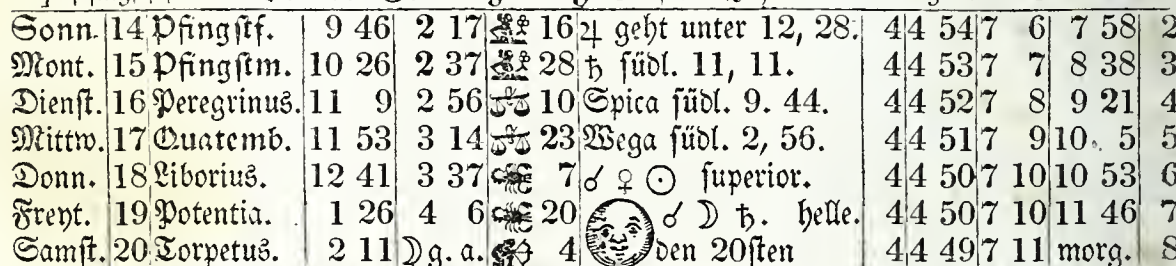 Sonn. 14 Pfingstf. 9 46 2 17 16 ♃ geht unter 12, 28. 4 4 54 7 6 7 58 2
Mont. 15 Pfingstm. 10 26 2 37 28 ♄ südl. 11, 11. 4 4 53 7 7 8 38 3
Dienst. 16 Peregrinus. 11 9 2 56 ♎ 10 Spica südl. 9. 44. 4 4 52 7 8 9 21 4
Mittw. 17 Quatemb. 11 53 3 14 ♎ 23 Wega südl. 2, 56. 4 4 51 7 9 10. 5 5
Donn. 18 Liborius. 12 41 3 37 ♏ 7 ☌ ♀ ☉ superior. 4 4 50 7 10 10 53 6
Freyt. 19 Potentia. 1 26 4 6 ♏ 20 ☌ ☽ ♄. helle. 4 4 50 7 10 11 46 7
Samst. 20 Torpetus. 2 11 ☽ g. a. 4 den 20sten 4 4 49 7 11 morg. 8